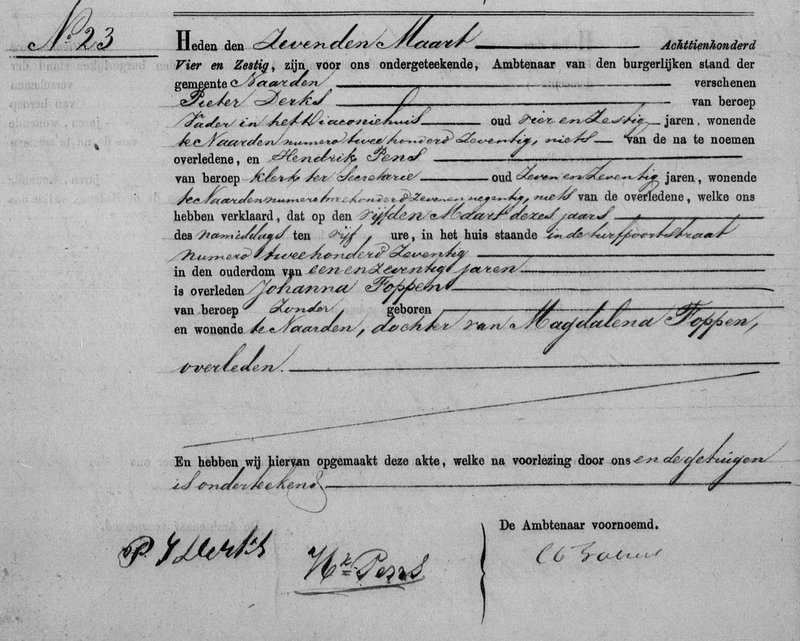 No. 23
Heden den Zevenden Maart Achttienhonderd
Vier en Zestig, zijn voor ons ondergeteekende, Ambtenaar van den burgerlijken stand der
gemeente Naarden verschenen
Pieter Derks van beroep
Vader in het Diaconiehuis oud vier en Zestig jaren, wonende
te Naarden numero twee honderd Zeventig, niets van de na te noemen
overledene, en Hendrik Pens
van beroep klerk ter Secretarie oud Zeven en Zeventig jaren, wonende
te Naarden numero tweehonderd Zevenen negentig, niets van de overledene, welke ons
hebben verklaard, dat op den vijfden Maart dezes jaars
des namiddags ten vijf ure, in het huis staande in de turfpoortstraat
numero tweehonderd Zeventig
in den ouderdom van een en zeventig jaren
is overleden Johanna Foppen
van beroep Zonder, geboren
en wonende te Naarden, dochter van Magdalena Foppen,
overleden.
En hebben wij hiervan opgemaakt deze akte, welke na voorlezing door ons en de getuigen
is onderteekend
De Ambtenaar voornoemd.
P. J Derks
Hk. Pens